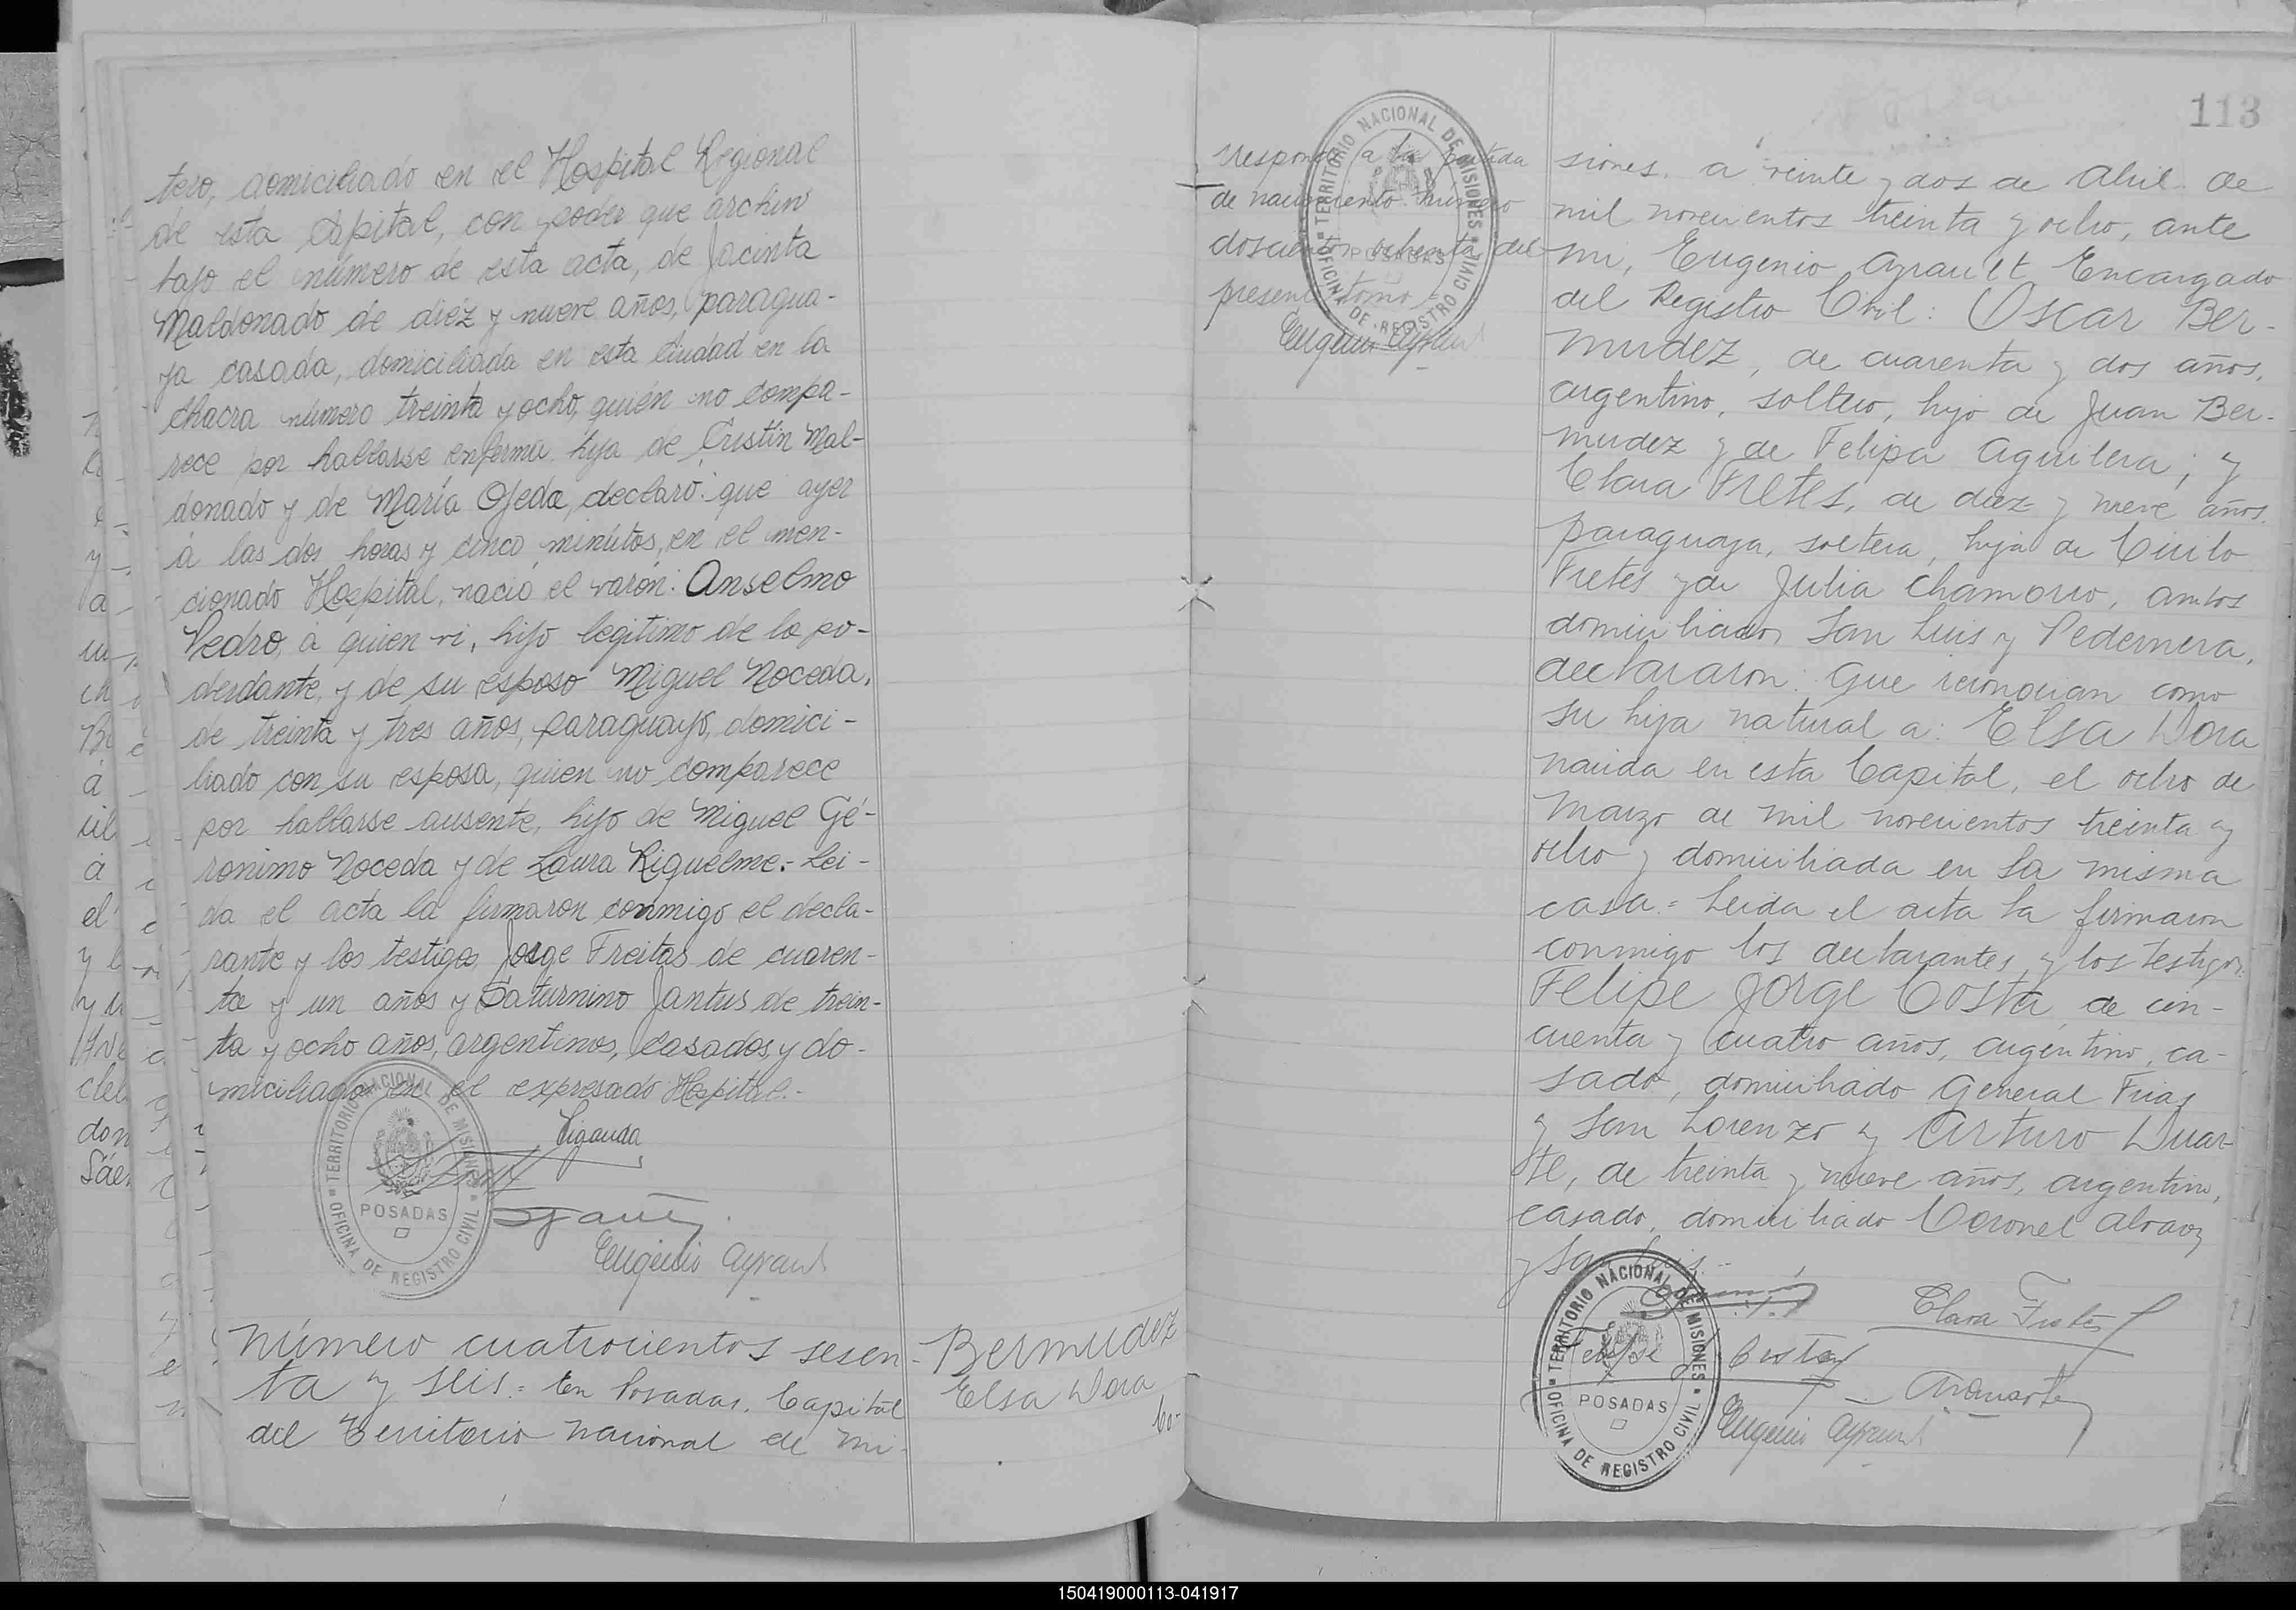 tero, domiciliado en el Hospital Regional
de esta Capital, con poder que archivo
bajo el número de esta acta, de Jacinta
Maldonado de diéz y nueve años, paragua-
ya casada, domiciliada en esta Ciudad en la
chacra número treinta y ocho, quién no compa-
rece por hallarse enferma hija de Cristín Mal-
donado y de María Ojeda, declaró: que ayer
á las dos horas y cinco minútos, en el men-
cionado Hospital, nació el varón: Anselmo
Pedro, á quien vi, hijo legitimo de la po-
derdante, y de su esposo Miguel Noceda,
de treinta y tres años, paraguayo, domici-
liado con su esposa, quien no comparece
por hallarse ausente, hijo de Miguel Gé-
ronimo Noceda y de Laura Riquelme.- Lei-
da el acta la firmaron conmigo el decla-
rante y los testigos Jorge Freitas de cuaren-
ta y un años y Saturnino Jantus de trein-
ta y ocho años, argentinos, casados y do-
miciliados en el expresado Hospital.-
Eugenio Ayrault
TERRITORIO NACIONAL DE MISIONES
POSADAS
OFICINA DE REGISTRO CIVIL
Número cuatrocientos sesen-
ta y seis.= En Posadas, Capital
del Territorio Nacional de Mi-
Bermudez
Elsa Dora
Co-
113
rresponde a la partida
de nacimiento número
doscientos ochenta del
presente tomo=
Eugenio Ayrault
TERRITORIO NACIONAL DE MISIONES
POSADAS
OFICINA DE REGISTRO CIVIL
siones, a veinte y dos de Abril de
mil novecientos treinta y ocho, ante
mi, Eugenio Ayrault Encargado
del Registro Civil: Oscar Ber-
mudez, de cuarenta y dos años,
argentino, soltero, hijo de Juan Ber-
mudez y de Felipa Aguilera; y
Clara Fretes, de diez y nueve años,
paraguaya, soltera, hija de Cirilo
Fretes y de Julia Chamorro, ambos
domiciliados San Luis y Pedernera,
declararon: Que reconocian como
su hija natural a: Elsa Dora
nacida en esta Capital, el ocho de
Marzo de mil novecientos treinta y
ocho y domiciliada en la misma
casa.= Leida el acta la firmaron
conmigo los declarantes y los testigos
Felipe Jorge Costa, de cin-
cuenta y cuatro años, argentino, ca-
sado, domiciliado General Frias
y San Lorenzo y Arturo Duar-
te, de treinta y nueve años, argentino,
casado, domiciliado Coronel Alvarez
y San Luis.-
Clara Fretes
Felipe J Costa
ADuarte
Eugenio Ayrault
TERRITORIO NACIONAL DE MISIONES
POSADAS
OFICINA DE REGISTRO CIVIL
150419000113-041917